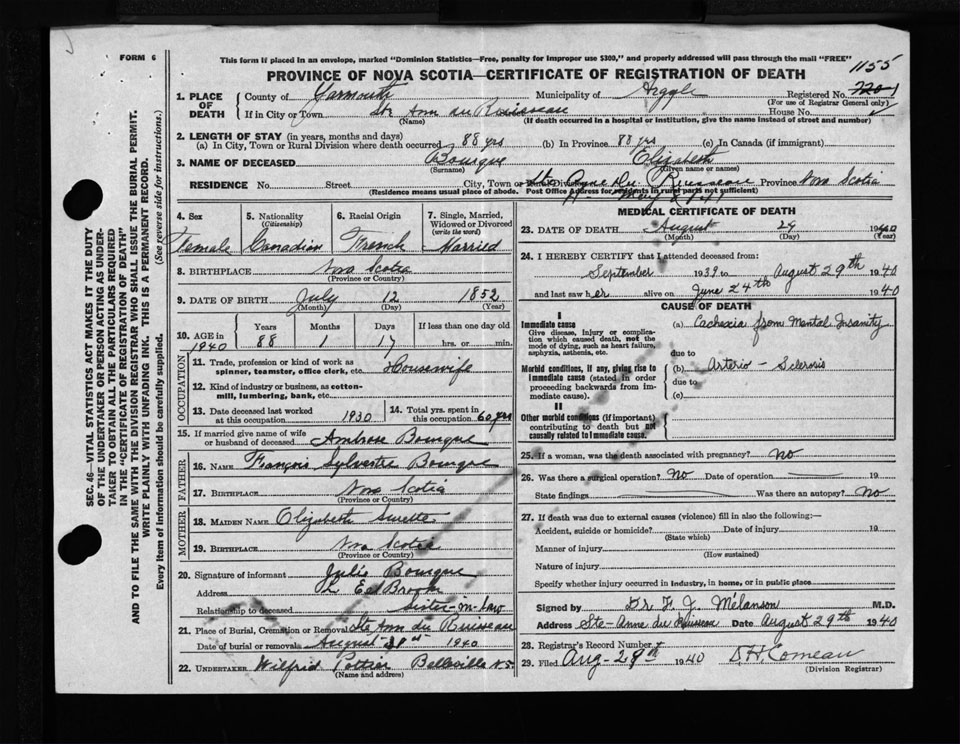 FORM 6
This form if placed in an envelope, marked "Dominion Statistics—Free, penalty for improper use $300," and properly addressed will pass through the mail "FREE"
1155
PROVINCE OF NOVA SCOTIA—CERTIFICATE OF REGISTRATION OF DEATH
1. PLACE OF DEATH
County of Yarmouth Municipality of Argyle Registered No. 2201
(For use of Registrar General only)
If in City or Town Ste Ann du Ruisseau House No.
(Name) (If death occurred in a hospital or institution, give the name instead of street and number)
2. LENGTH OF STAY (in years, months and days)
(a) In City, Town or Rural Division where death occurred 88 yrs (b) In Province 88 yrs (c) In Canada (if immigrant)
3. NAME OF DECEASED Bourque Elizabeth
(Surname) (Given name or names)
RESIDENCE No. Street City, Town or Rural Division Ste. Anne Du Ruisseau Province Nova Scotia
(Residence means usual place of abode. Post Office Address for residents in rural parts not sufficient)
4. Sex
Female
5. Nationality (Citizenship)
Canadian
6. Racial Origin
French
7. Single, Married, Widowed or Divorced (write the word)
Married
8. BIRTHPLACE Nova Scotia
(Province or Country)
9. DATE OF BIRTH July 12 1852
(Month) (Day) (Year)
10. AGE in 1940
Years Months Days If less than one day old
88 1 17 hrs. or min.
OCCUPATION
11. Trade, profession or kind of work as spinner, teamster, office clerk, etc. Housewife
12. Kind of industry or business, as cotton-mill, lumbering, bank, etc.
13. Date deceased last worked at this occupation 1930
14. Total yrs. spent in this occupation 60 yrs
15. If married give name of wife or husband of deceased Ambrose Bourque
FATHER
16. NAME François Sylvestre Bourque
17. BIRTHPLACE Nova Scotia
(Province or Country)
MOTHER
18. MAIDEN NAME Elizabeth Surette
19. BIRTHPLACE Nova Scotia
(Province or Country)
20. Signature of informant Julie Bourque
Address Eel Brook
Relationship to deceased Sister-in-Law
21. Place of Burial, Cremation or Removal Ste Ann du Ruisseau
Date of burial or removal August 31st 1940
22. UNDERTAKER Wilfrid Pottier Belleville N.S.
(Name and address)
MEDICAL CERTIFICATE OF DEATH
23. DATE OF DEATH August 29 1940
(Month) (Day) (Year)
24. I HEREBY CERTIFY that I attended deceased from:
September 1939 to August 29th 1940
and last saw her alive on June 24th 1940
CAUSE OF DEATH
I
Immediate cause
Give disease, injury or complication which caused death, not the mode of dying, such as heart failure, asphyxia, asthenia, etc.
(a) Cachexia from Mental Insanity
due to
Morbid conditions, if any, giving rise to immediate cause (stated in order proceeding backwards from immediate cause).
(b) Arterio-Sclerosis
due to
(c)
II
Other morbid conditions (if important) contributing to death but not causally related to immediate cause.
25. If a woman, was the death associated with pregnancy? No
26. Was there a surgical operation? No Date of operation 19
State findings Was there an autopsy? No
27. If death was due to external causes (violence) fill in also the following:—
Accident, suicide or homicide? Date of injury 19
(State which)
Manner of injury
(How sustained)
Nature of injury
Specify whether injury occurred in industry, in home, or in public place
Signed by Dr F. J. Mélanson M.D.
Address Ste-Anne du Ruisseau Date August 29th 1940
28. Registrar's Record Number
29. Filed Aug-29th 1940 D H Comeau
(Division Registrar)
SEC. 46—VITAL STATISTICS ACT MAKES IT THE DUTY
OF THE UNDERTAKER OR PERSON ACTING AS UNDERTAKER TO OBTAIN ALL THE PARTICULARS REQUIRED
IN THE "CERTIFICATE OF REGISTRATION OF DEATH"
AND TO FILE THE SAME WITH THE DIVISION REGISTRAR WHO SHALL ISSUE THE BURIAL PERMIT.
WRITE PLAINLY WITH UNFADING INK. THIS IS A PERMANENT RECORD.
Every item of information should be carefully supplied. (See reverse side for instructions.)